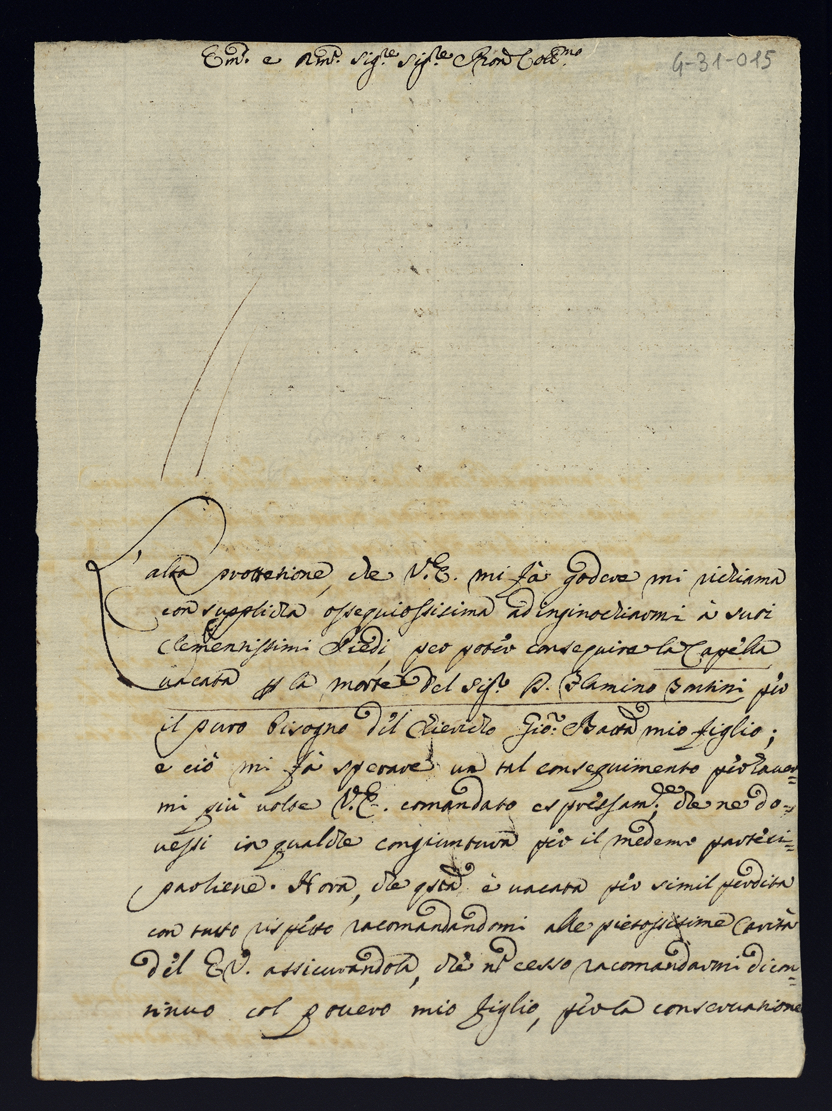 Em.o e Rm.o Sig.re Sig.re Pron Coll.mo
G-31-015
L'alta prottetione, che V.E. mi fà godere mi richiama
con supplicha ossequiossisima ad inginochiarmi à suoi
clementissimi Piedi, per poter conseguire la Capella
vacata p la morte del Sig.r D. Flaminio Bontini per
il puro bisogno del Chiericho Gio: Batta mio figlio;
e ciò mi fà sperare un tal conseguimento per haver=
mi più volte V.E. comandato espressam.te che ne do=
vessi in qualche congiuntura per il medemo parteci=
parliene. Hora, che qsta è vacata per simil perdita
con tutto rispetto racomandandomi alle pietosissime Carità
del E.V. assicurandola, che nò cesso racomandarmi di con=
tinuo col povero mio figlio, per la conservatione